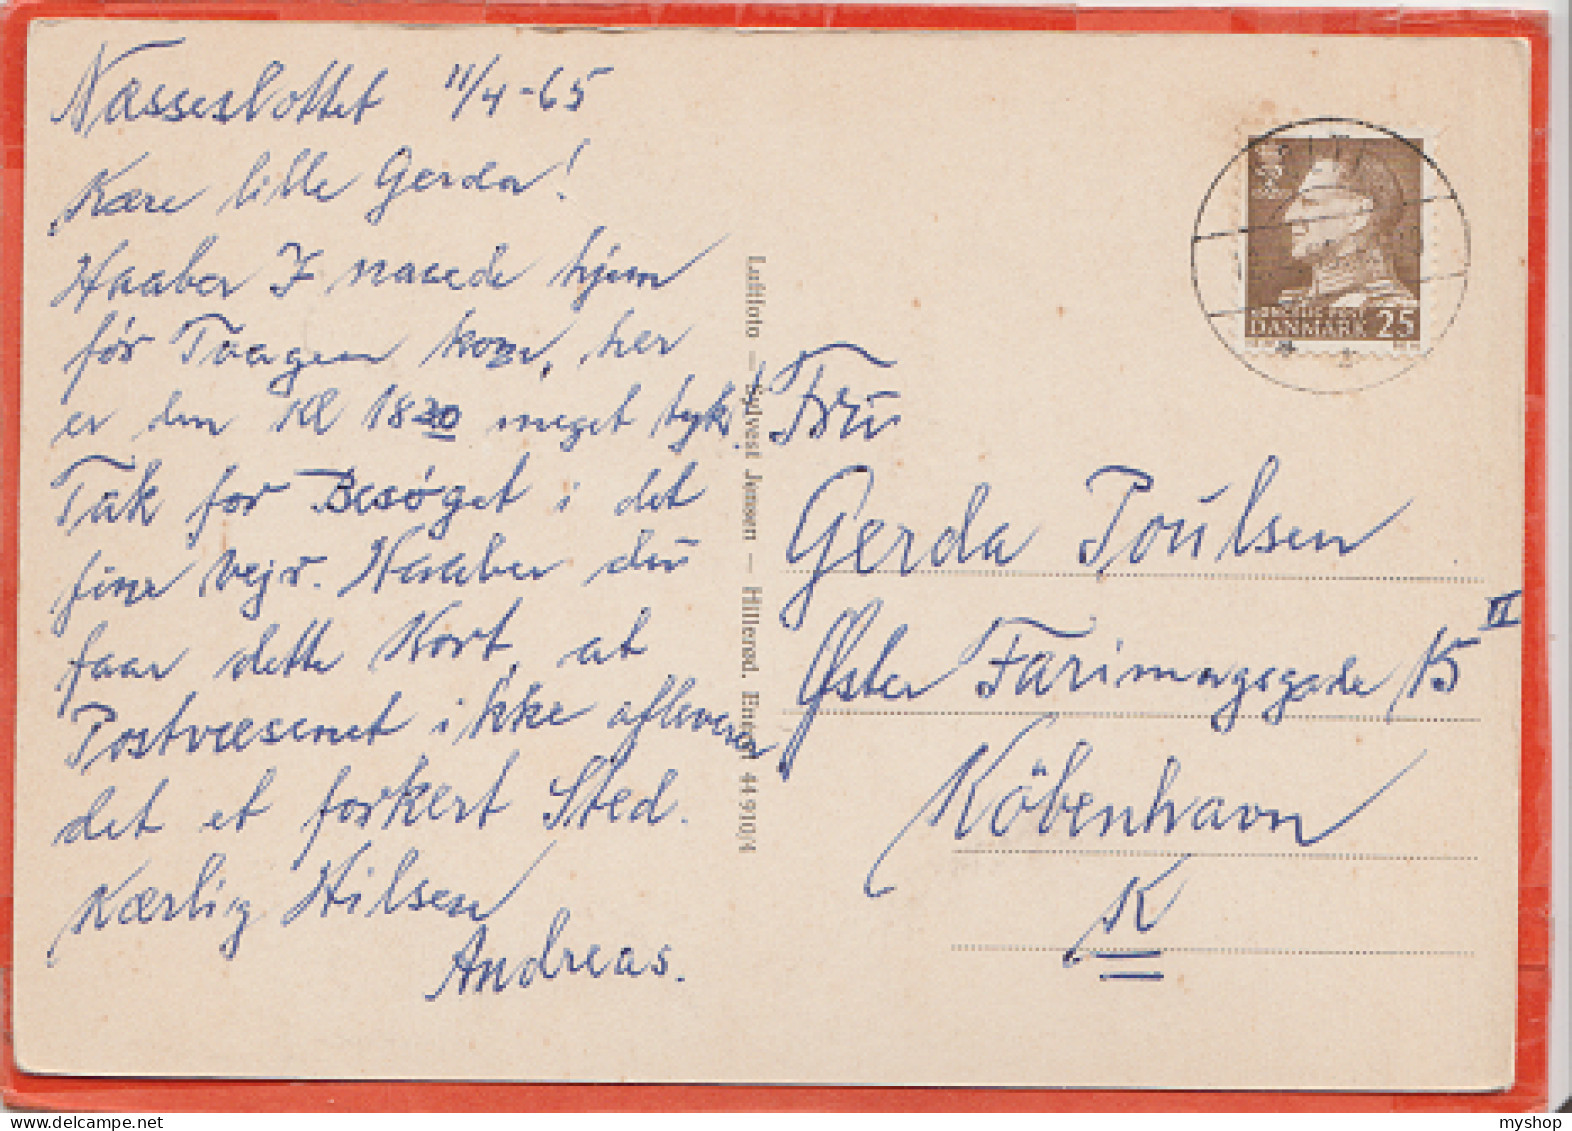 Næsseslottet 11/4-65
Kære lille Gerda!
Haaber I naaede hjem
før Taagen kom, her
er den Kl 1820 meget tyk!
Tak for Besøget i det
fine vejr. Haaber du
faar dette Kort, at
Postvæsenet ikke afleverer
det et forkert Sted.
Kærlig Hilsen
Andreas.
Luftfoto — Sylvest Jensen — Hillerød. Eneret 44910/4
DANMARK 25
Fru
Gerda Poulsen
Øster Farimagsgade 15 II
København
K
myshop